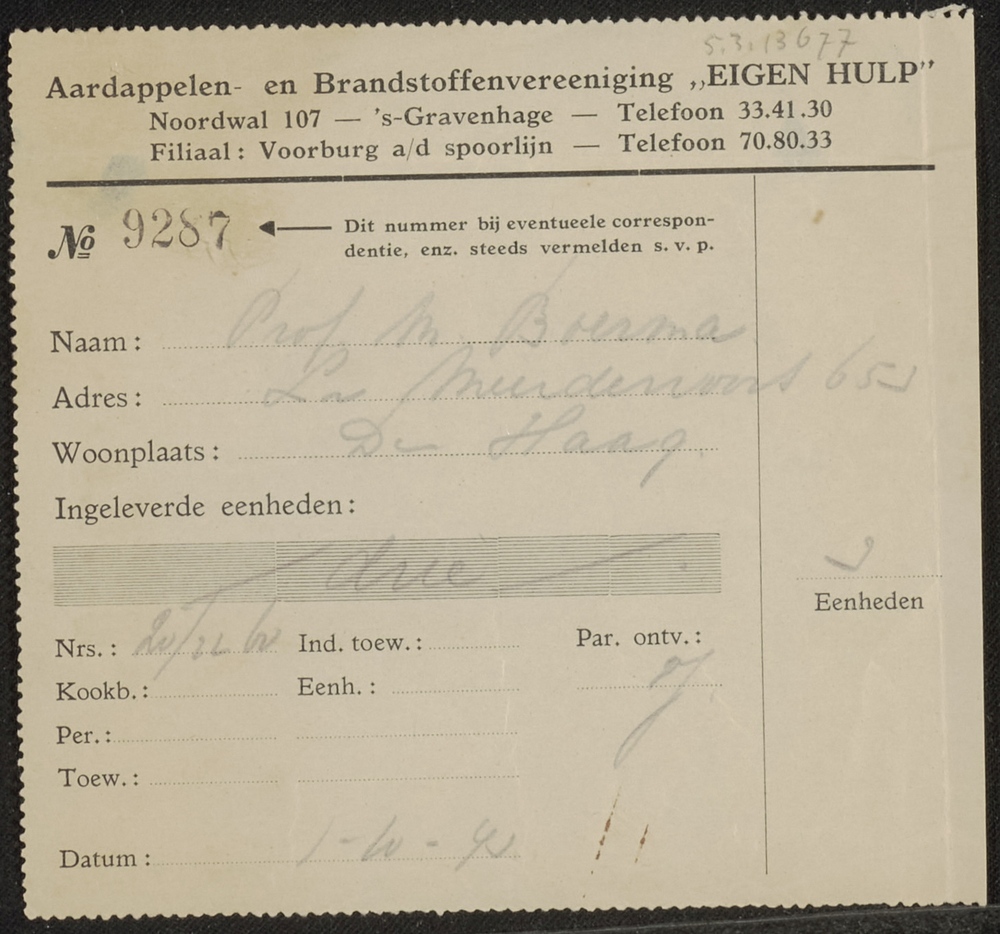 5.3.13677
Aardappelen- en Brandstoffenvereeniging „EIGEN HULP”
Noordwal 107 — 's-Gravenhage — Telefoon 33.41.30
Filiaal: Voorburg a/d spoorlijn — Telefoon 70.80.33
№ 9287
Dit nummer bij eventueele correspon-
dentie, enz. steeds vermelden s. v. p.
Naam: Prof. M. Boerma
Adres: Ln Meerdervoort
Woonplaats: Den Haag.
Ingeleverde eenheden:
drie
Eenheden
Nrs.: Ind. toew.: Par. ontv.:
Kookb.: Eenh.:
Per.:
Toew.:
Datum: